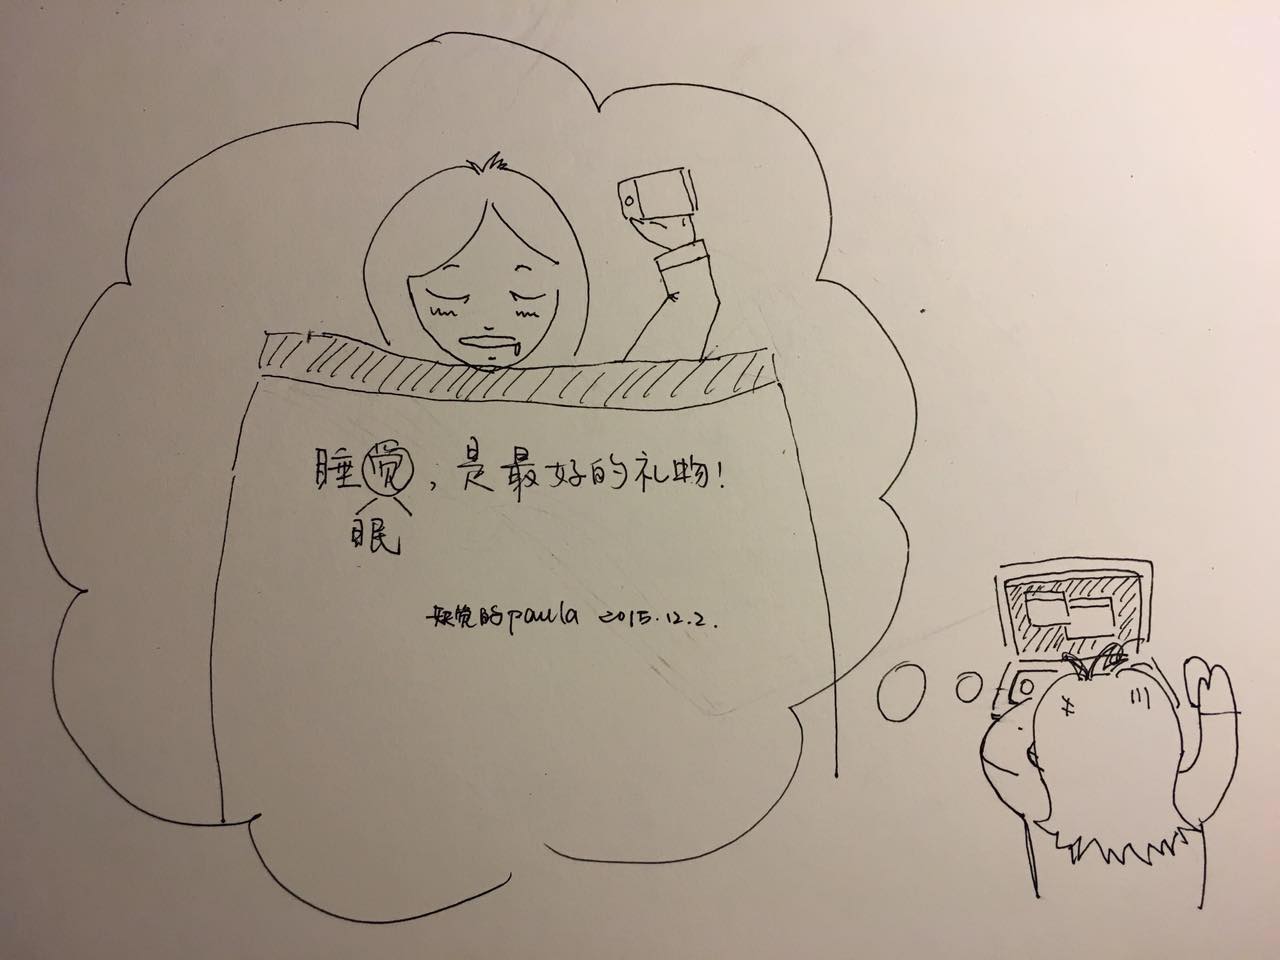 睡觉，是最好的礼物！
眠
缺觉的paula 2015.12.2.